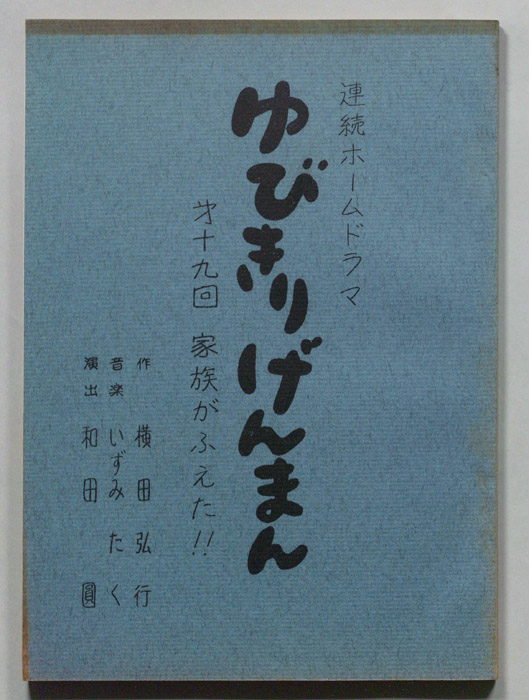 連続ホームドラマ
ゆびきりげんまん
才十九回 家族がふえた!!
作 横田弘行
音楽 いずみたく
演出 和田 圓